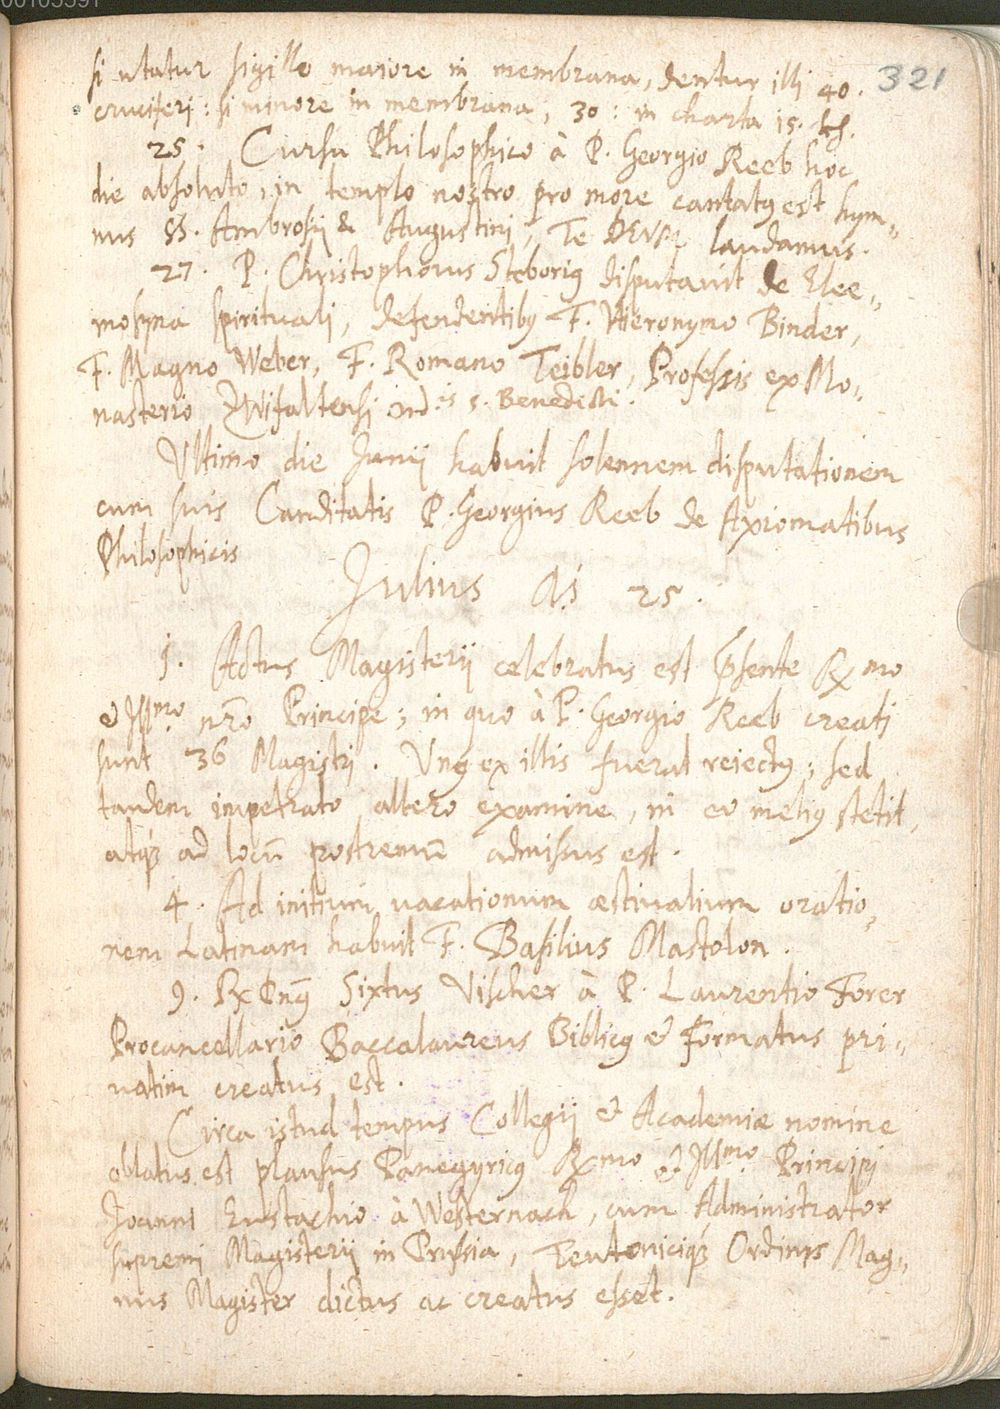 00105591
321
si utatur sigillo maiore in membrana, dentur illi 40.
cruciferi: si minore in membrana, 30: in charta 15. kh.
25. Cursu Philosophico à P. Georgio Reeb hoc
die absoluto, in templo nostro pro more cantatꝰ est hym„
nus SS. Ambrosij & Augustini, Te DEVM laudamus.
27. P. Christophorus Steborig disputavit de Elee„
mosyna spirituali, defendentibꝰ F. Hieronymo Binder,
F. Magno Weber, F. Romano Teibler, Professis ex Mo„
nasterio Zwifaltensi ord.is S. Benedicti.
Vltimo die Junij habuit solennem disputationem
cum suis Canditatis P. Georgius Reeb de Axiomatibus
Philosophicis
Julius Aº 25.
1. Actus Magisterij celebratus est p̄sente Rmo
& Illmo nr̄o Principe; in quo à P. Georgio Reeb creati
sunt 36 Magistri. Vnꝰ ex illis fuerat reiectꝰ; sed
tandem impetrato altero examine, in eo meliꝰ stetit,
atqꝫ ad locū postremū admissus est.
4. Ad initium vacationum æstiualium oratio„
nem Latinam habuit F. Basilius Mastolon.
9. R Dnꝰ Sixtus Vischer à P. Laurentio Forer
Procancellario Baccalaureus Biblicꝰ & Formatus pri„
uatim creatus est.
Circa istud tempus Collegij & Academiæ nomine
oblatus est plausus Panegyricꝰ Rmo & Illmo Principi
Joanni Eustachio à Westernach, cum Administrator
supremi Magisterij in Prussia, Teutoniciqꝫ Ordinis Mag„
nus Magister dictus ac creatus esset.